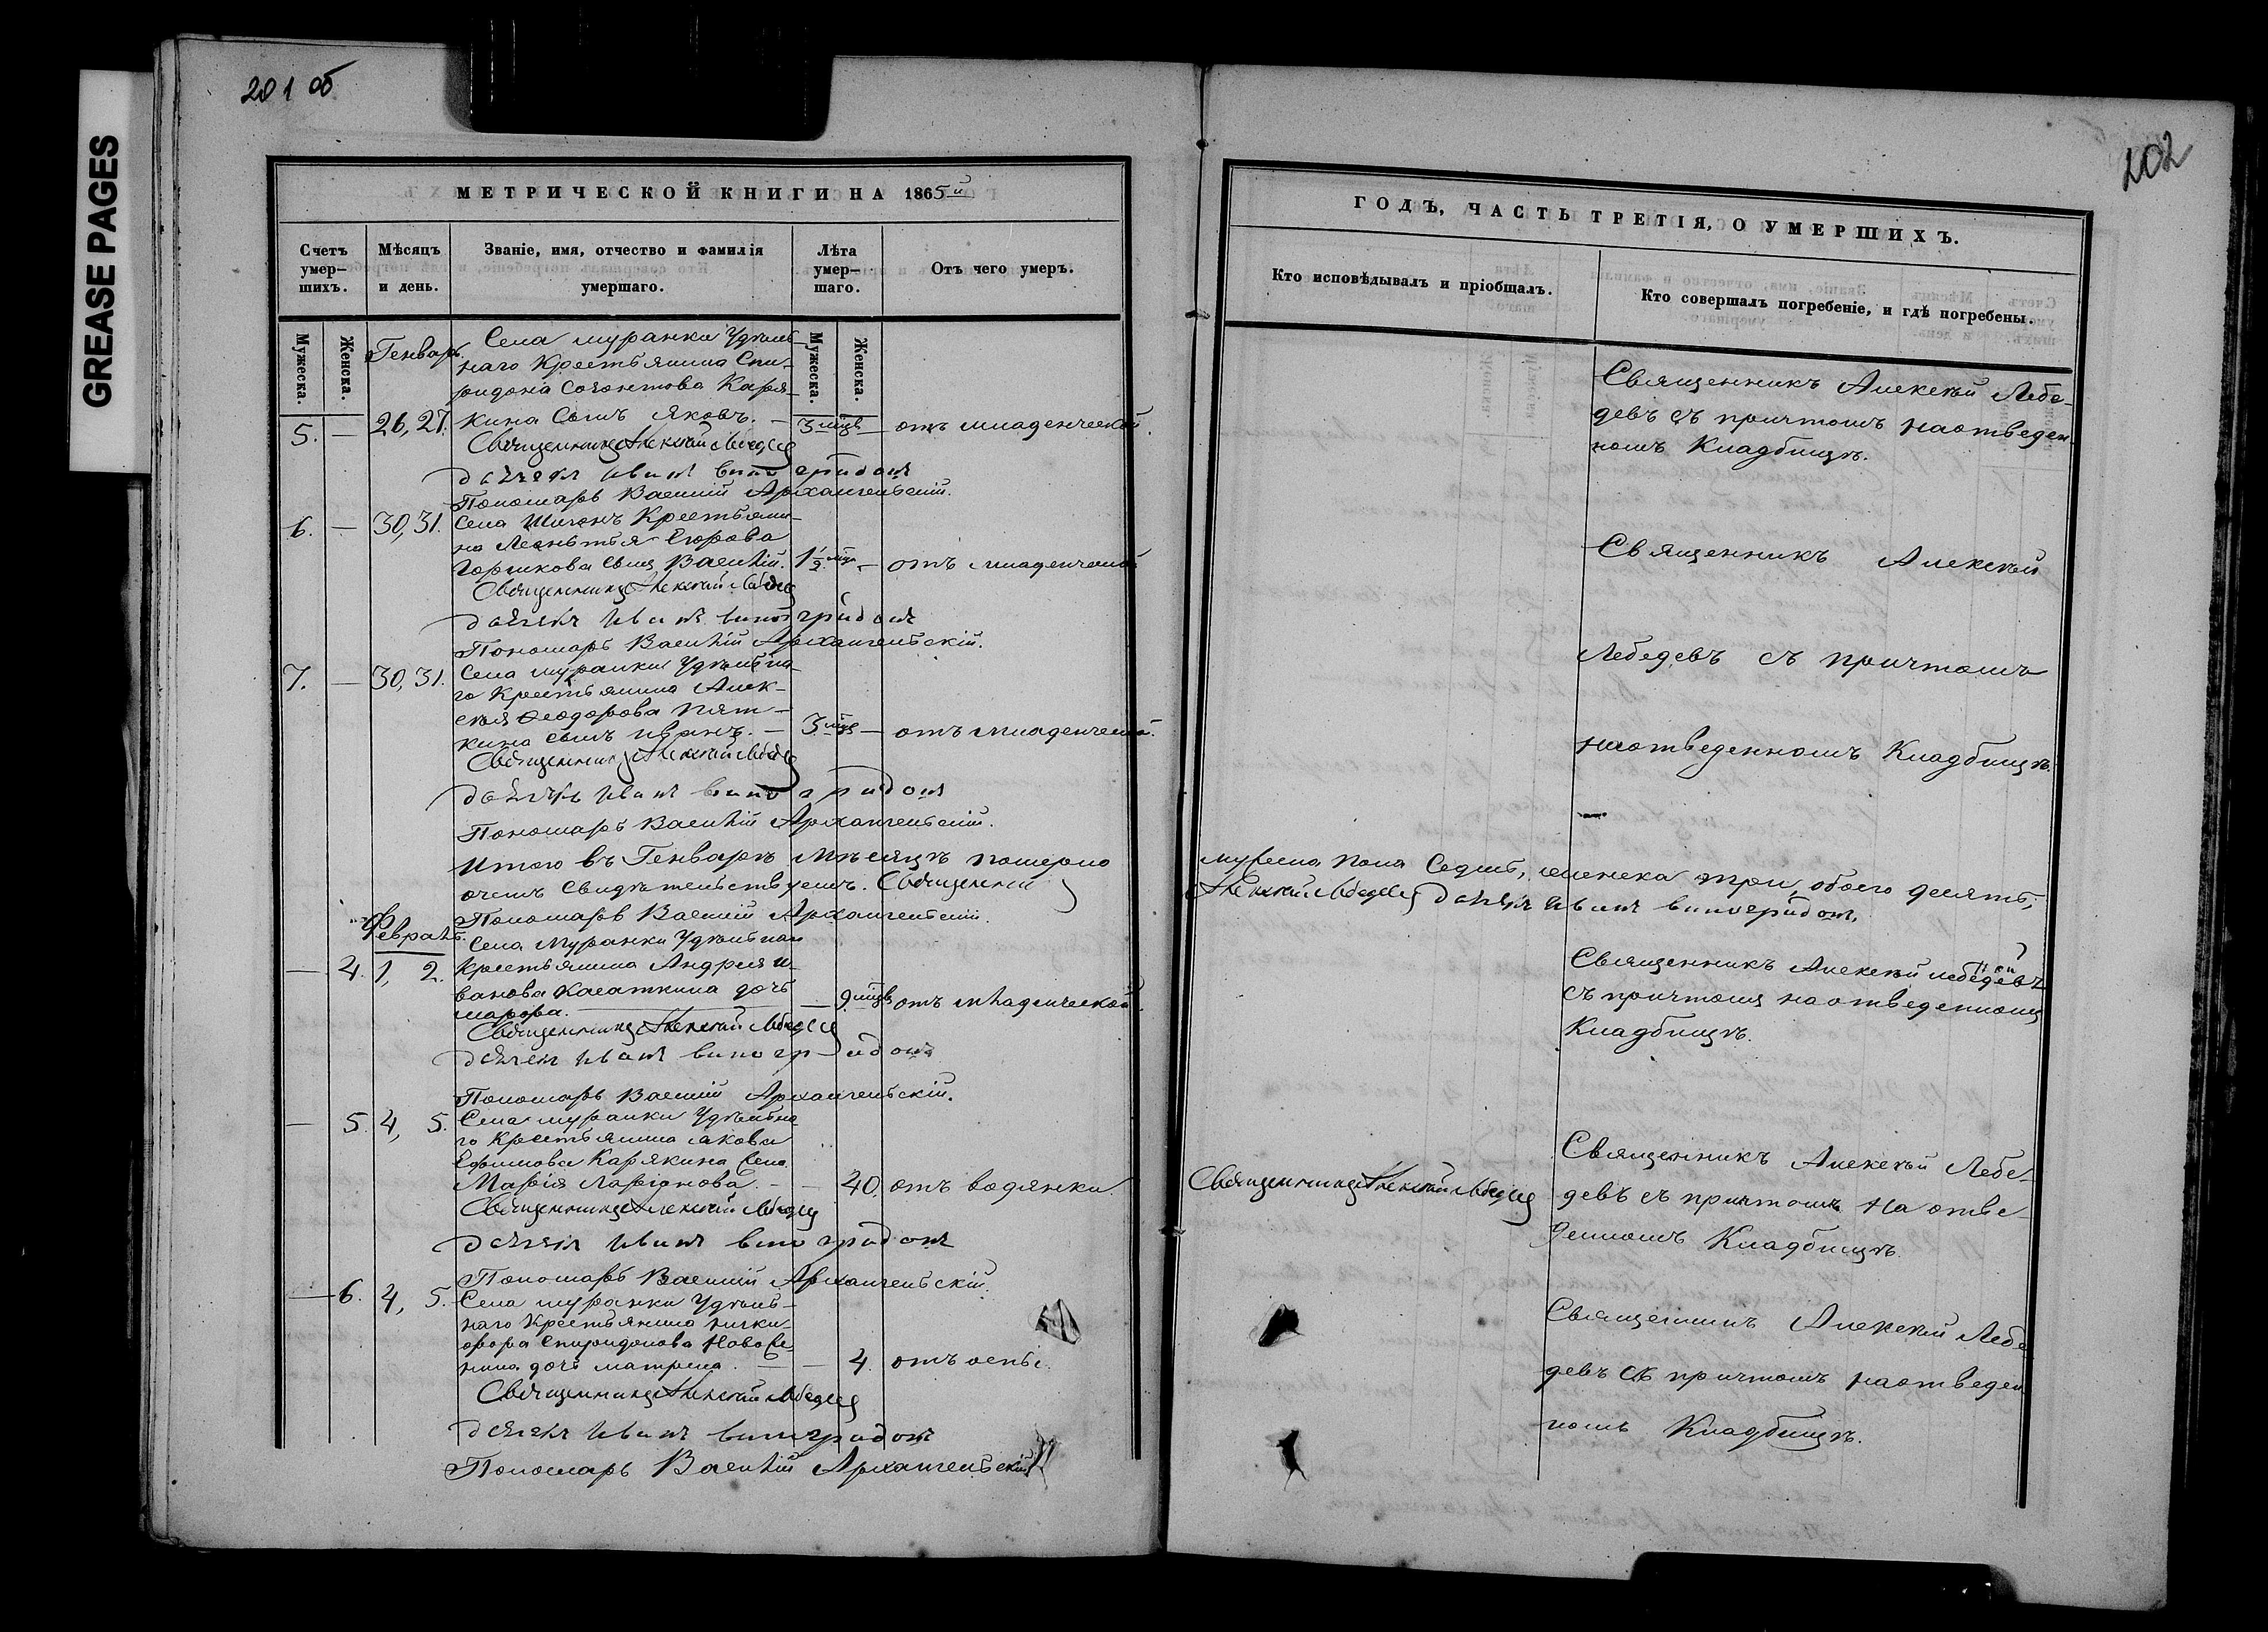 GREASE PAGES
201 об
202
МЕТРИЧЕСКОЙ КНИГИ НА 1865й
Счетъ умер-шихъ.
Мѣсяцъ и день.
Званіе, имя, отчество и фамилія умершаго.
Лѣта умер-шаго.
Отъ чего умеръ.
Мужеска.
Женска.
Мужеска.
Женска.
Генварь.
Села Муранки Удѣль-
наго Крестьянина Спи-
ридона Созонтова Каря-
5. — 26, 27. кина сынъ Яковъ. — 3 мцв — отъ младенческой.
Священникъ Алексѣй Лебедевъ
дьячекъ Иванъ Виноградовъ
Пономарь Василій Архангельскій.
6. — 30, 31. Села Шигонъ Крестьяни-
на Леонтья Егорова
Горшкова сынъ Василій. 1½ мцв — отъ младенческой
Священникъ Алексѣй Лебедевъ
дьячекъ Иванъ Виноградовъ
Пономарь Василій Архангельскій.
7. — 30, 31. Села Муранки Удѣльна-
го Крестьянина Алек-
сѣя Ѳеодорова Пят-
кина сынъ Иванъ. — 3 мцв — отъ младенческой.
Священникъ Алексѣй Лебедевъ
дьячекъ Иванъ Виноградовъ
Пономарь Василій Архангельскій.
Итого въ Генварѣ Мѣсяцѣ померло
очемъ свидѣтельствуемъ. Священникъ
Пономарь Василій Архангельскій.
Февраль.
Села Муранки Удѣльнаго
— 4. 1, 2. Крестьянина Андрея И-
ванова Касаткина дочь
— 9 мцв отъ младенческой.
Священникъ Алексѣй Лебедевъ
дьячекъ Иванъ Виноградовъ
Пономарь Василій Архангельскій.
— 5. 4, 5. Села Муранки Удѣльна-
го Крестьянина Якова
Ефимова Карякина жена
Марія Ларіонова. — — 40. отъ водянки.
Священникъ Алексѣй Лебедевъ
дьячекъ Иванъ Виноградовъ
Пономарь Василій Архангельскій.
— 6. 4, 5. Села Муранки Удѣль-
наго Крестьянина Ники-
фора Спиридонова Новосе-
нина дочь Матрена. — — 4. отъ оспы.
Священникъ Алексѣй Лебедевъ
дьячекъ Иванъ Виноградовъ
Пономарь Василій Архангельскій
ГОДЪ, ЧАСТЬ ТРЕТІЯ, О УМЕРШИХЪ.
Кто исповѣдывалъ и пріобщалъ.
Кто совершалъ погребеніе, и гдѣ погребены.
Священникъ Алексѣй Лебе-
девъ съ причтомъ наотведен-
номъ Кладбищѣ.
Священникъ Алексѣй
Лебедевъ съ причтомъ
наотведенномъ Кладбищѣ.
мужеска пола Седмь, женска три, обоего десять;
Алексѣй Лебедевъ дьячекъ Иванъ Виноградовъ,
Священникъ Алексѣй Лебедевъ
съ причтомъ на отведенномъ
Кладбищѣ.
Священникъ Алексѣй Лебедевъ
Священникъ Алексѣй Лебе-
девъ съ причтомъ на отве-
денномъ Кладбищѣ.
Священникъ Алексѣй Лебе
девъ съ причтомъ наотведен
номъ Кладбищѣ.